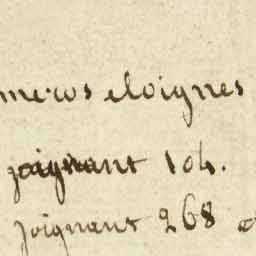 meros eloignes
joignant 104.
joignant 268